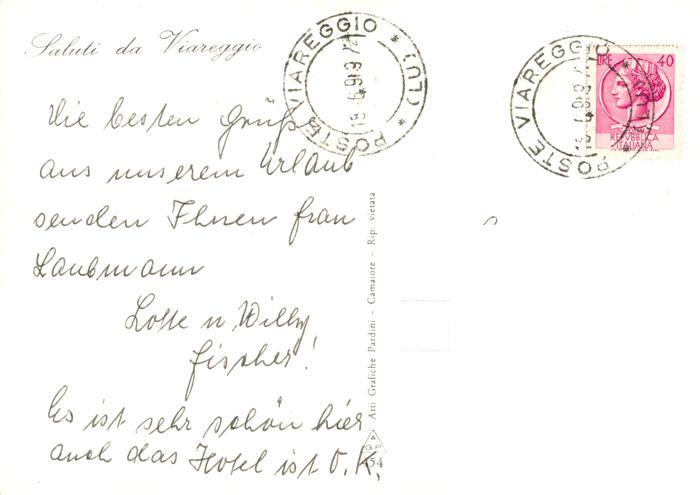 Saluti da Viareggio
Die besten Grüße
aus unserem Urlaub
senden Ihnen Frau
Laubmann
Lotte u Willy
Fischer!
Es ist sehr schön hier
auch das Hotel ist O.K,
POSTE VIAREGGIO * (LU) *
POSTE VIAREGGIO * (LU) *
LIRE 40
REPVBBLICA
ITALIANA
Arti Grafiche Pardini - Camaiore - Rip. vietata
454